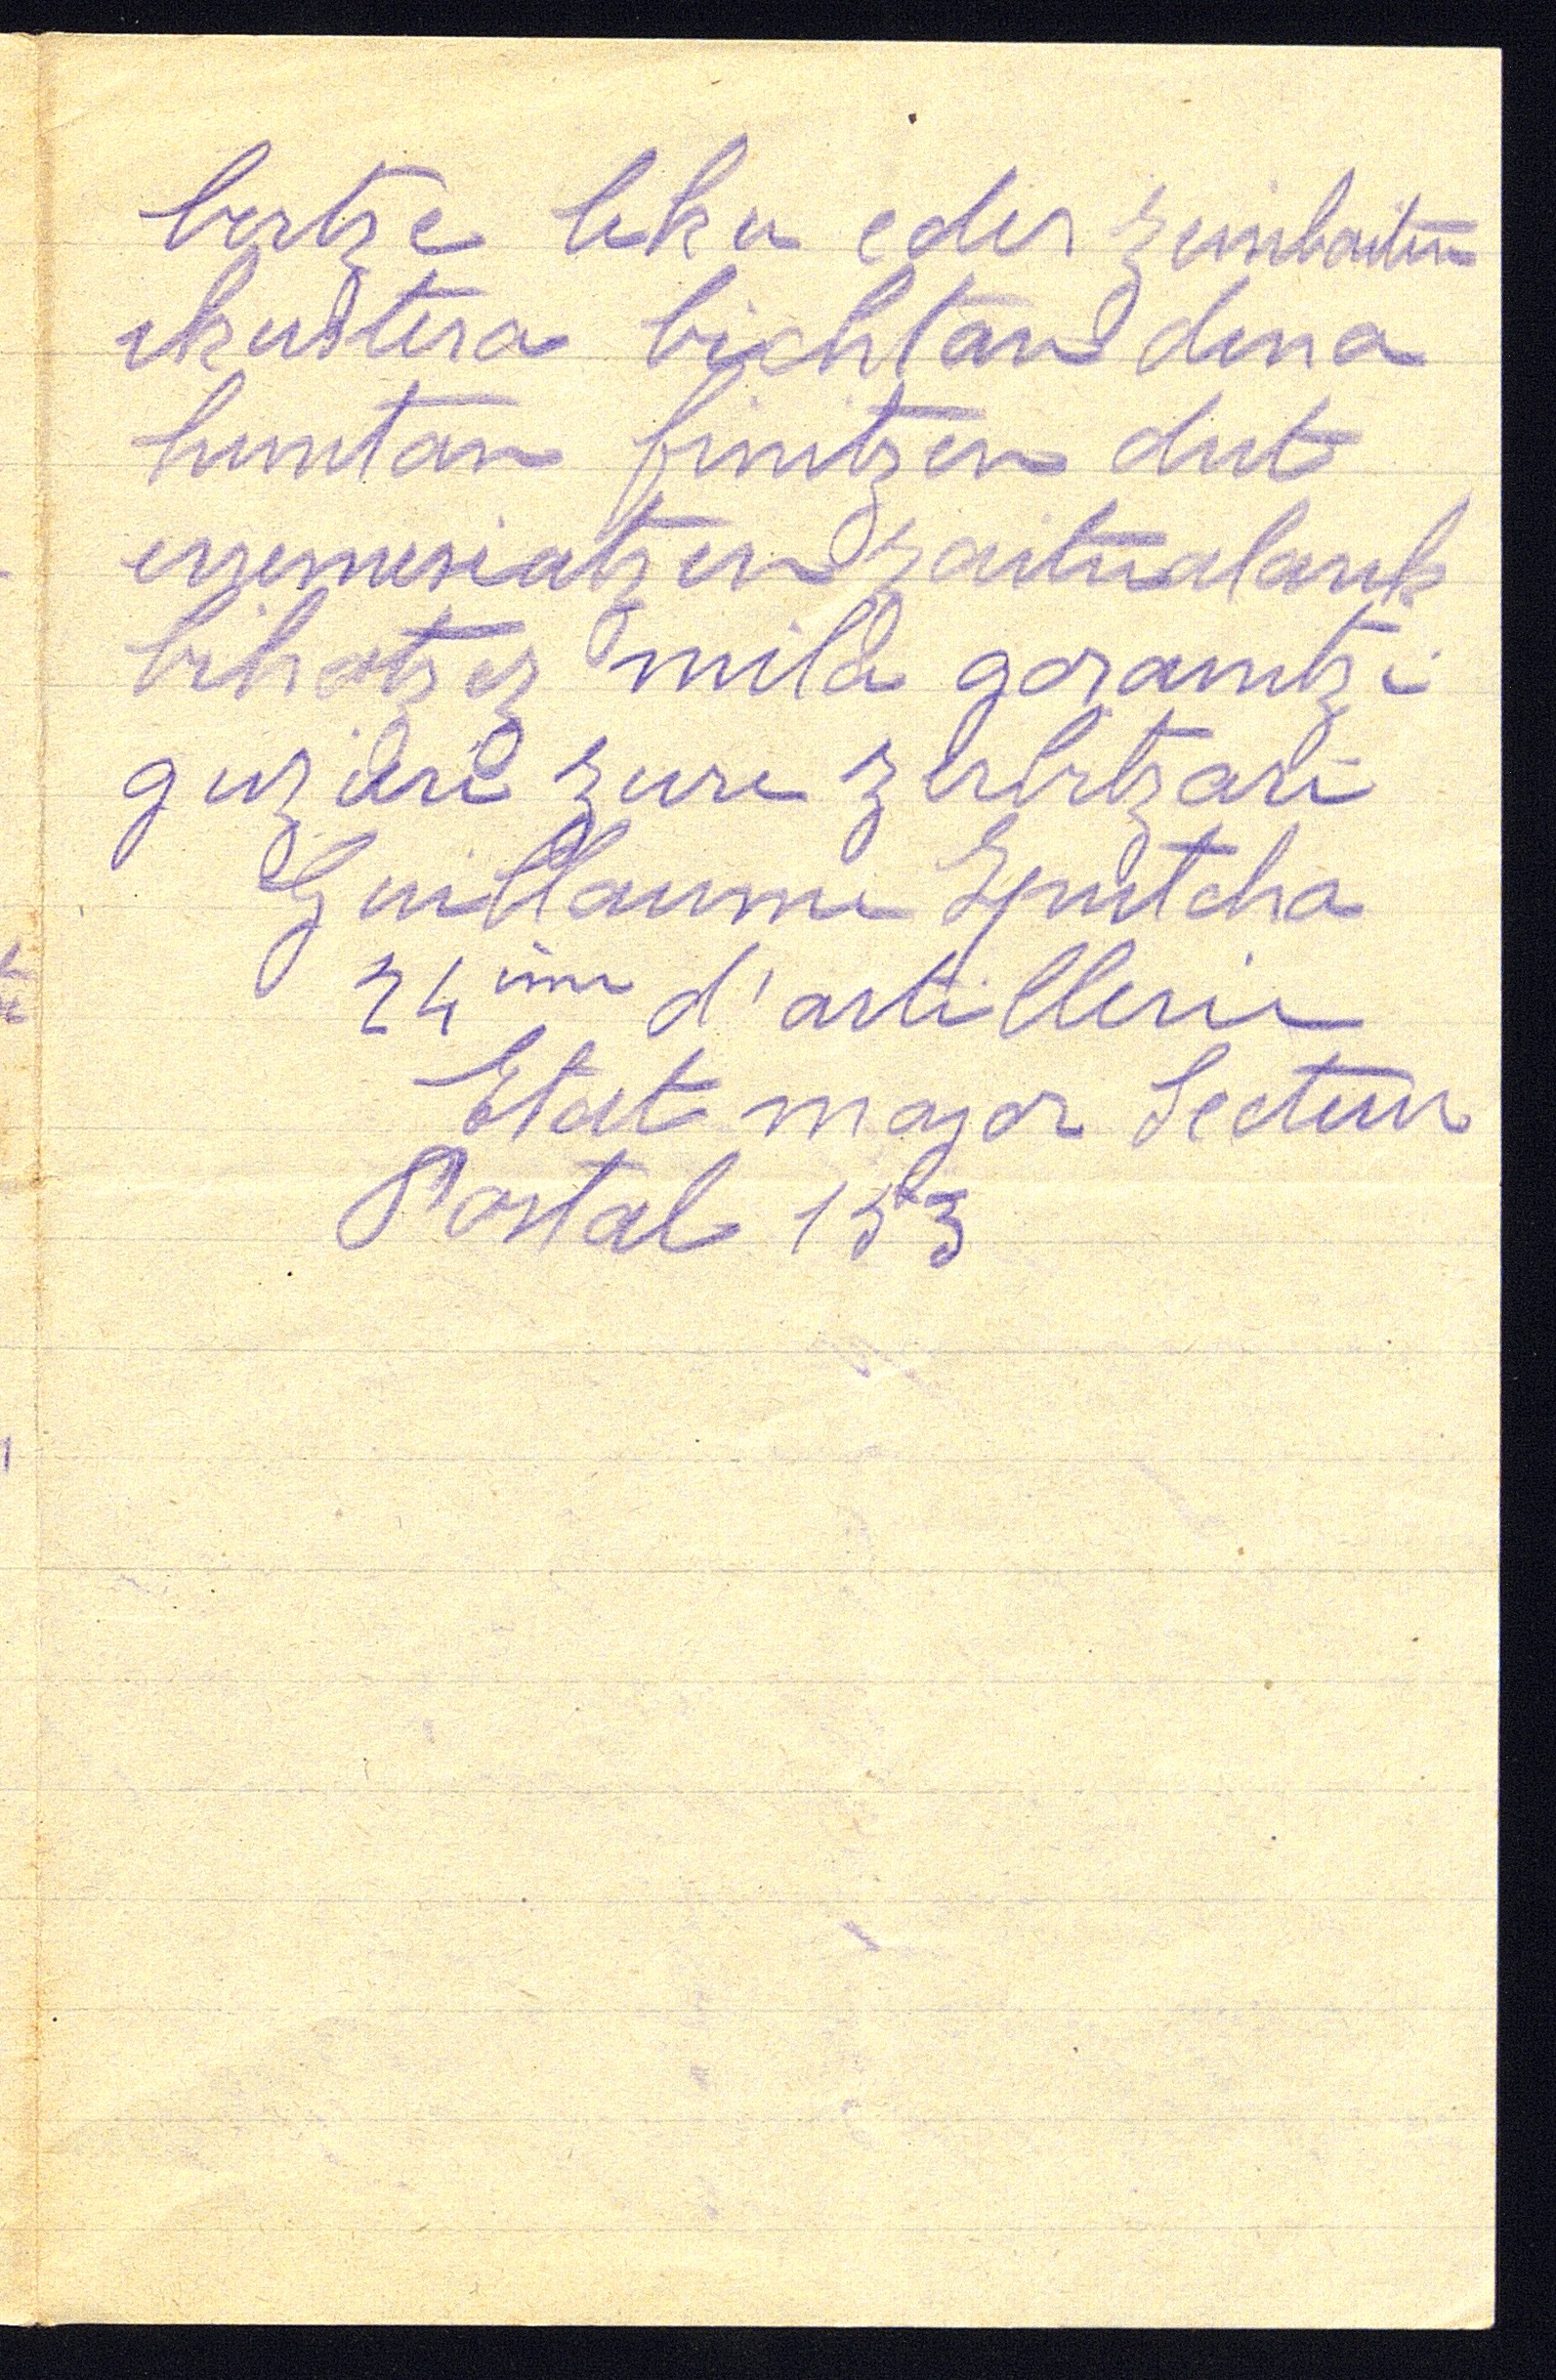 bertze leku eder zenbaiten
ikustera bichtan dena
huntan finitzen dut
erremesiatzen zaitualarik
bihotzez mila goraintzi
guzieri zure zerbitzari
Guillaume Eputcha
24ème d'artillerie
Etat major Secteur
Postal 153